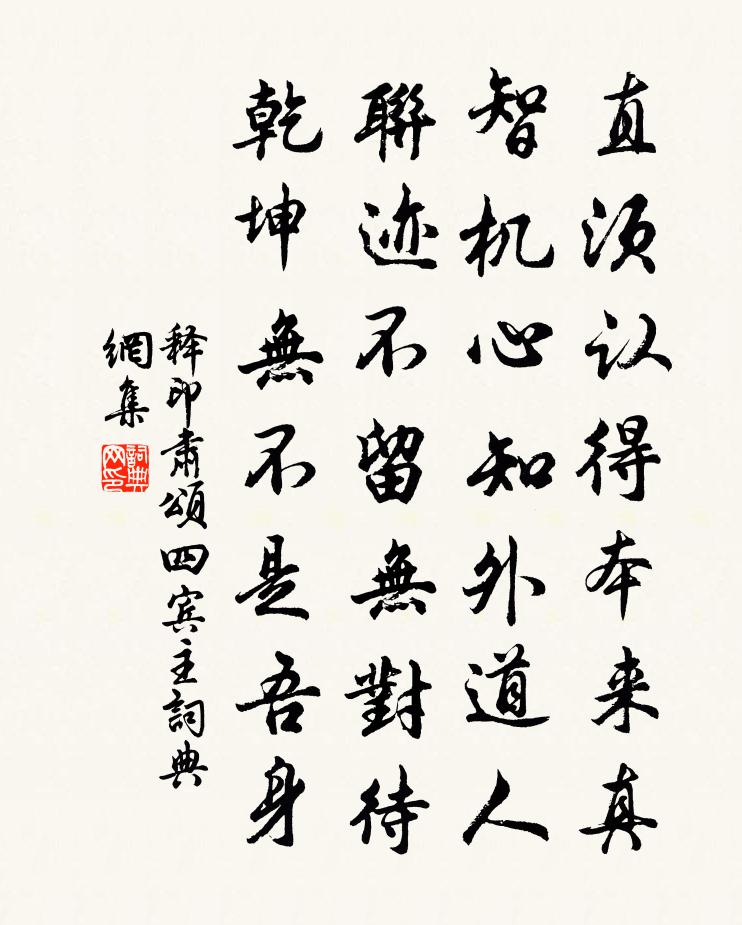 直须认得本来真
智机心知外道人
聯迹不留無對待
乾坤無不是吾身
释印肃頌四宾主詞典
網集
詞典网印